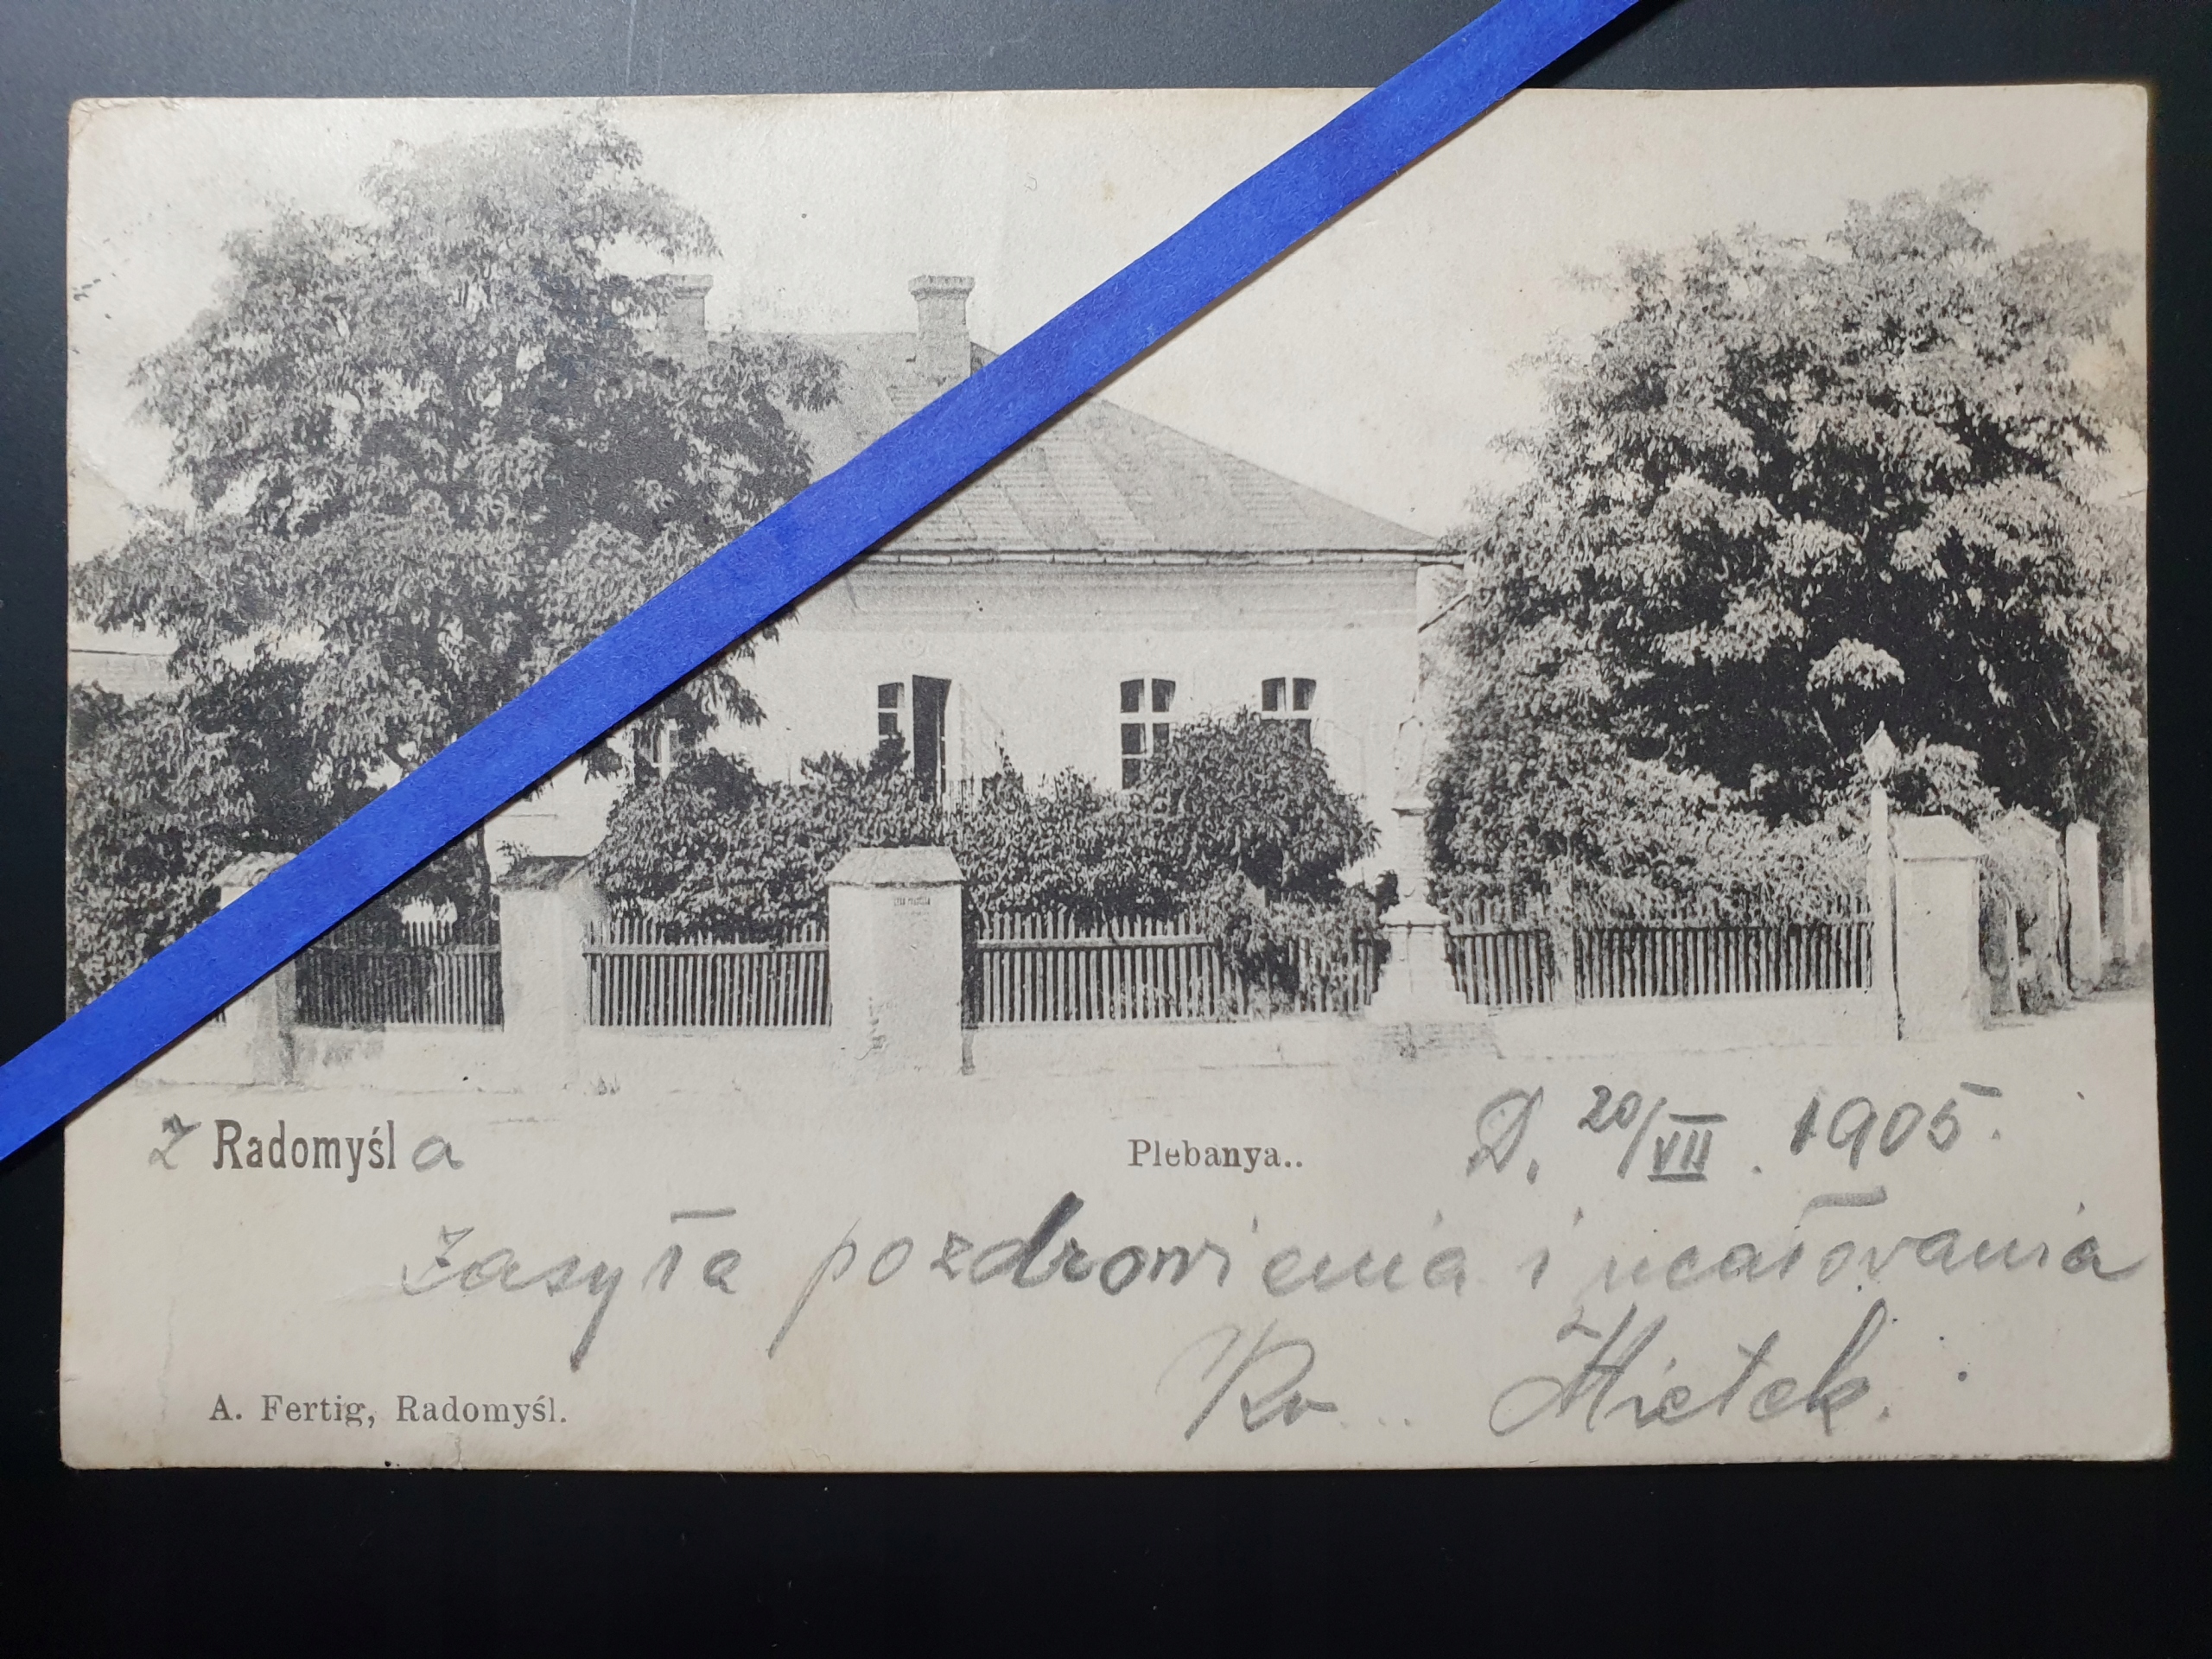 Z Radomyśla Plebanya.. D. 20/VII. 1905.
Zasyła pozdrowienia i ucałowania
Hietek.
A. Fertig, Radomyśl.